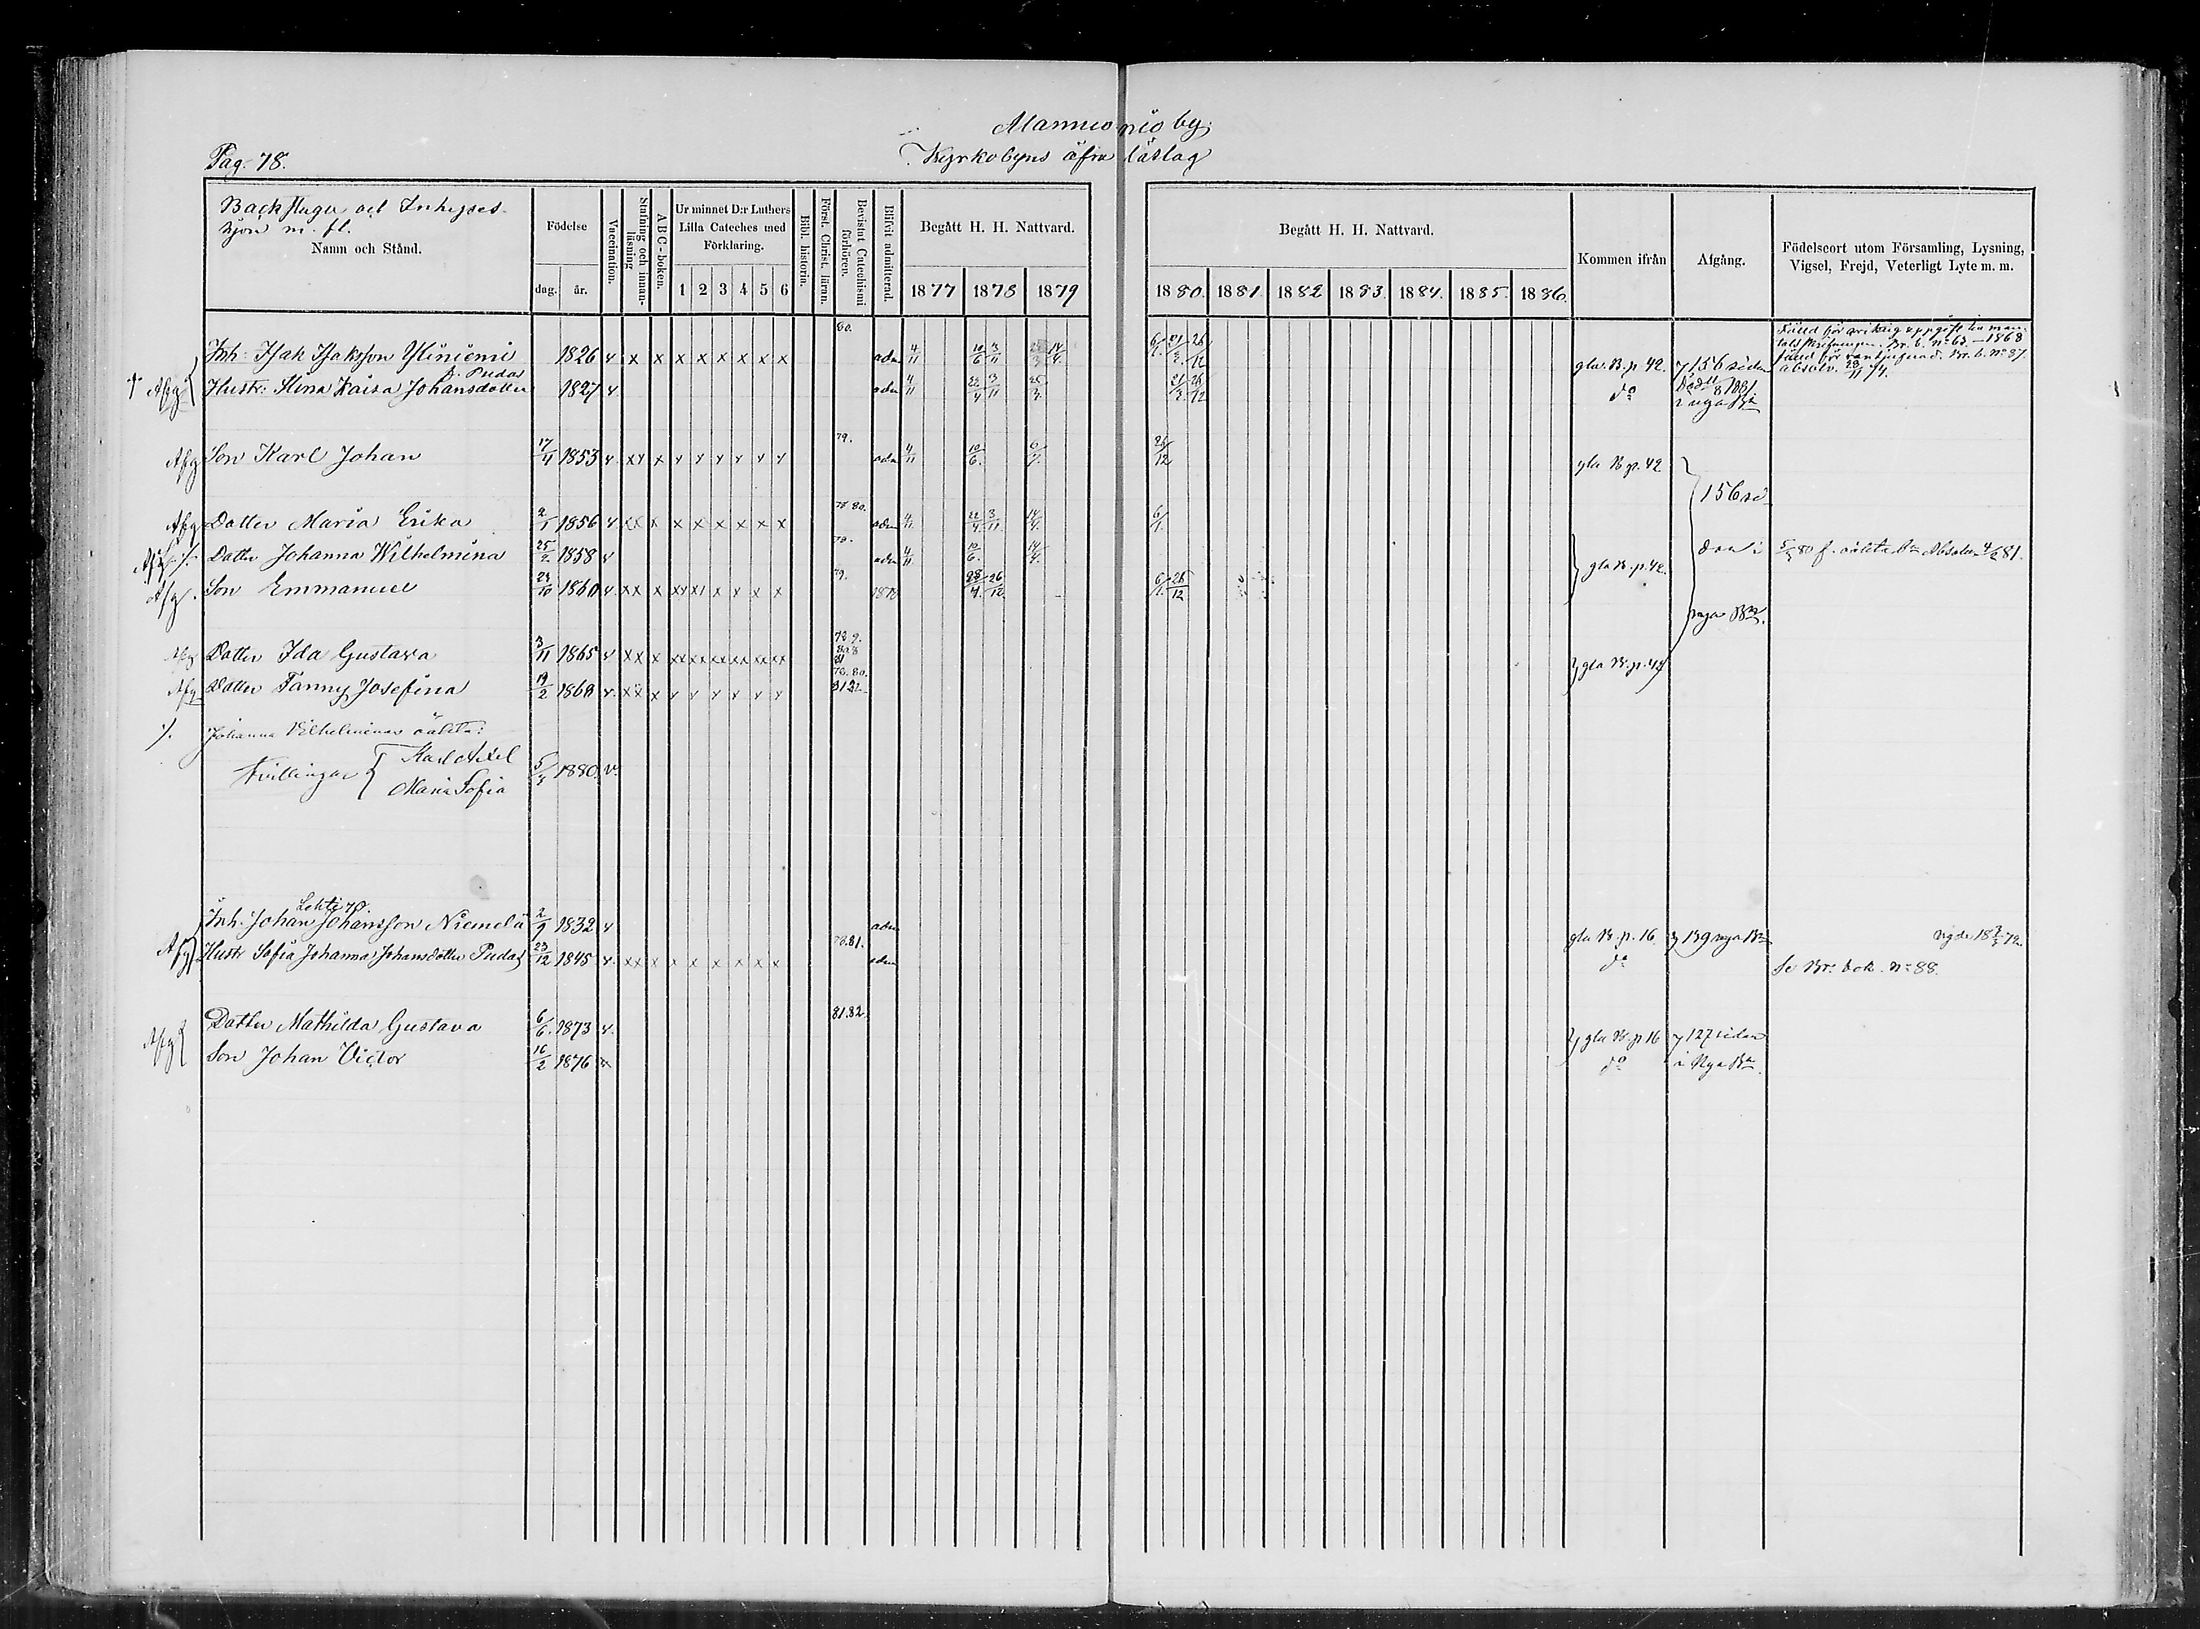 Alamuonio by.
Pag. 78.
Kyrkobyns öfra läslag
Backstugu och Inhyses-
hjon m. fl.
Namn och Stånd.
Födelse
dag. år.
Vaccination.
Stafning och innan-
läsning
ABC-boken.
Ur minnet D:r Luthers
Lilla Cateches med
Förklaring.
1 2 3 4 5 6
Bibl. historien.
Först. Christ. läran.
Bevistat Catechismi
förhören.
Blifvit admitterad.
Begått H. H. Nattvard.
1877 1878 1879
Begått H. H. Nattvard.
1880. 1881. 1882 1883. 1884. 1885. 1886.
Kommen ifrån
Afgång.
Födelseort utom Församling, Lysning,
Vigsel, Frejd, Veterligt Lyte m. m.
Inh: Isak Isaksson Yliniemi 1826 v. x x x x x x x x 80. adm 4/11 10/6 3/11 14/4. 6/1. 21/3 26/12 gla B. p 42. 156 sidan
f. Pudas
Afg Hustr: Stina Kaisa Johansdotter 1827 v. adm 4/11 22/4 3/11 21/3 26/12 do död 1881 i nya Bn
absolv. 74.
Afg Son Karl Johan 17/4 1853 v. xx x x x x x x x 79. adm 4/11 10/6. 26/12 gla B p. 42.
156 si
Afg Dotter Maria Erika 2/1 1856 v. xx x x x x x x x 78 80. adm 4/11 22/4 3/11 14/4. 6/1.
Afg Dotter Johanna Wilhelmina 25/2 1858 v adm 4/11 10/6. 14/4. gla B. p. 42. dan i 5/3 80 f. oäkta Absolv. 81.
Afg. Son Emmanuel 1860 v. xx x xx x x x x x 79. 1878 28/4. 26/12 6/1. 26/12
nya Bn.
Afg Dotter Ida Gustava 3/11 1865 v xx x xx xx xx xx xx xx 78 9. 81 gla B. p. 42
Afg Dotter Fanny Josefina 19/2 1869 v. xx x x x x x x x 78. 80. 81 82.
Johanna Vilhelminas oäkta:
Tvillingar Karl Axel
Maria Sofia 5/3 1880. v.
Lehti 70
Inh. Johan Johansson Niemelä 2/9 1832 v adm gla B. p. 16. 139 nya Bn vigde 18
Afg Hustr Sofia Johanna Johansdotter Pudas 23/12 1845 v. xx x x x x x x x 78.81. adm do Se Br. bok. No 88.
Dotter Mathilda Gustava 6/6. 1873 v. 81.82. gla B. p 16 127 sidan
Afg Son Johan Victor 16/2 1876 v do i Nya Bn.